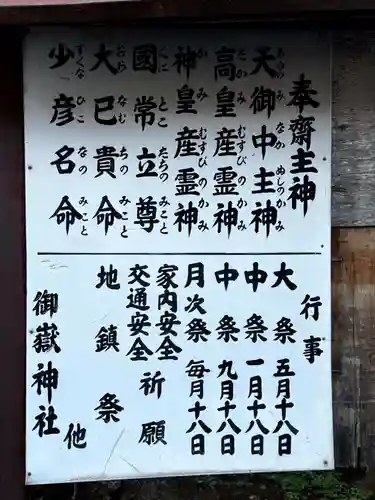 奉斎主神
天御中主神
あめのみなかぬしのかみ
高皇産霊神
たかみむすびのかみ
神皇産霊神
かみむすびのかみ
國常立尊
くにとこたちのみこと
大已貴命
おおなむちのみこと
少彦名命
すくなひこなのみこと
行事
大祭 五月十八日
中祭 一月十八日
中祭 九月十八日
月次祭 毎月十八日
家内安全
交通安全
祈願
地鎮祭
他
御嶽神社